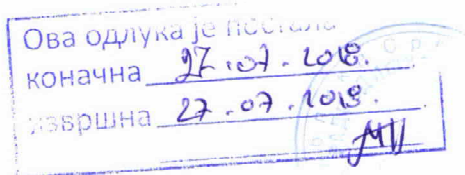 Ова одлука је постала
коначна 27.07.2018.
извршна 27.07.2018.